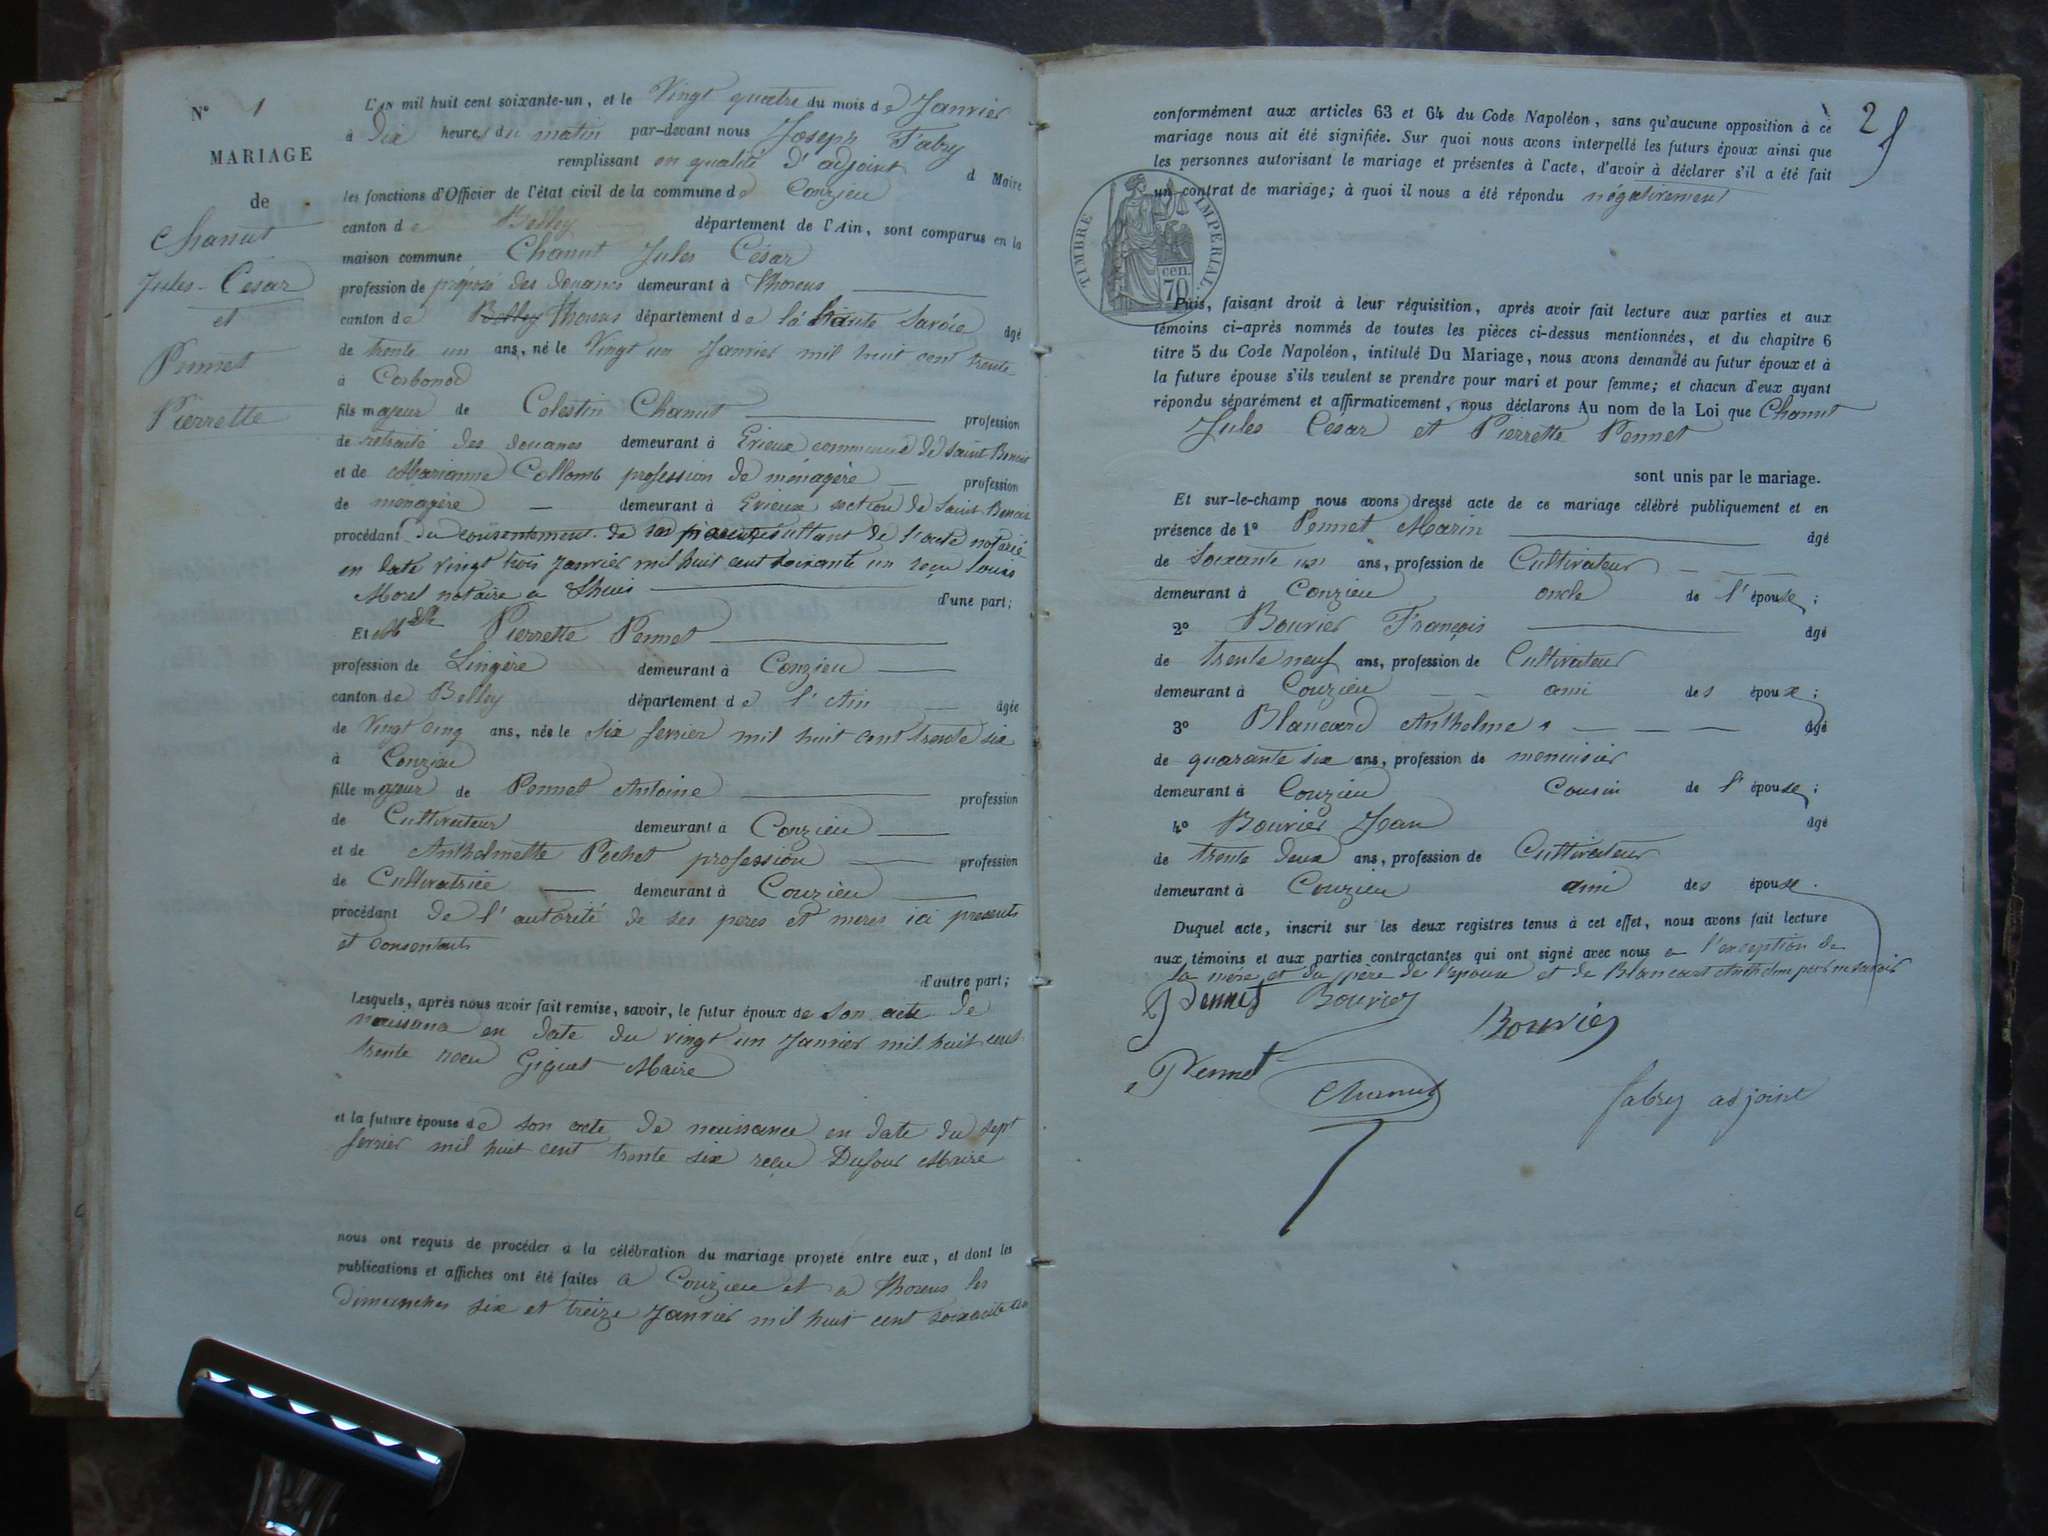 N° 1
MARIAGE
de
Chanut
Jules-César
et
Pennet
Pierrette
L'an mil huit cent soixante-un, et le Vingt quatre du mois de Janvier
à Dix heures du matin par-devant nous Joseph Fabry
remplissant en qualité d'adjoint d Maire
les fonctions d'Officier de l'état civil de la commune de Conzieu
canton de Belley département de l'Ain, sont comparus en la
maison commune Chanut Jules César
profession de préposé des douanes demeurant à Thorens
canton de Belley Thorens département de la haute Savoie âgé
de trente un ans, né le Vingt un Janvier mil huit cent trente
à Corbonod
fils majeur de Celestin Chanut profession
de retraité des douanes demeurant à Evieux commune de Saint Benoit
et de Marianne Collomb profession de ménagère profession
de menagère demeurant à Evieux section de Saint Benoit
procédant du consentement de ses résultant de l'acte notarié
en date vingt trois Janvier mil huit cent soixante un reçu Louis
Morel notaire a Lhuis d'une part;
Et Mdlle Pierrette Pennet
profession de Lingère demeurant à Conzieu
canton de Belley département de l'Ain âgée
de Vingt cinq ans, née le six fevrier mil huit cent trente six
à Conzieu
fille majeur de Pennet Antoine profession
de Cultivateur demeurant à Conzieu
et de Anthelmette Pochet profession profession
de Cultivatrice demeurant à Conzieu
procédant de l'autorité de ses peres et meres ici presents
et consentants
d'autre part;
Lesquels, après nous avoir fait remise, savoir, le futur époux de son acte de
naissance en date du vingt un Janvier mil huit cent
trente recu Giguet Maire
et la future épouse de son acte de naissance en date du sept
fevrier mil huit cent trente six reçu Dufour Maire
nous ont requis de procéder à la célébration du mariage projeté entre eux, et dont les
publications et affiches ont été faites a Conzieu et a Thorens les
dimanches six et treize Janvier mil huit cent soixante un
2
conformément aux articles 63 et 64 du Code Napoléon, sans qu'aucune opposition à ce
mariage nous ait été signifiée. Sur quoi nous avons interpellé les futurs époux ainsi que
les personnes autorisant le mariage et présentes à l'acte, d'avoir à déclarer s'il a été fait
un contrat de mariage; à quoi il nous a été répondu négativement
TIMBRE IMPERIAL
70 cen.
Puis, faisant droit à leur réquisition, après avoir fait lecture aux parties et aux
témoins ci-après nommés de toutes les pièces ci-dessus mentionnées, et du chapitre 6
titre 5 du Code Napoléon, intitulé Du Mariage, nous avons demandé au futur époux et à
la future épouse s'ils veulent se prendre pour mari et pour femme; et chacun d'eux ayant
répondu séparément et affirmativement, nous déclarons Au nom de la Loi que Chanut
Jules César et Pierrette Pennet
sont unis par le mariage.
Et sur-le-champ nous avons dressé acte de ce mariage célébré publiquement et en
présence de 1° Pennet Marin âgé
de soixante un ans, profession de Cultivateur
demeurant à Conzieu oncle de l'épouse;
2° Bouvier François âgé
de trente neuf ans, profession de Cultivateur
demeurant à Conzieu ami des époux;
3° Blancard Anthelme âgé
de quarante six ans, profession de menuisier
demeurant à Conzieu Cousin de l'épouse;
4° Bouvier Jean âgé
de trente deux ans, profession de Cultivateur
demeurant à Conzieu ami des époux.
Duquel acte, inscrit sur les deux registres tenus à cet effet, nous avons fait lecture
aux témoins et aux parties contractantes qui ont signé avec nous a l'exception de
la mère et du père de l'epouse et de Blancard Anthelme pour ne savoir
Pennet Bouvier
Bouvier
Pennet
Chanut
fabry adjoint